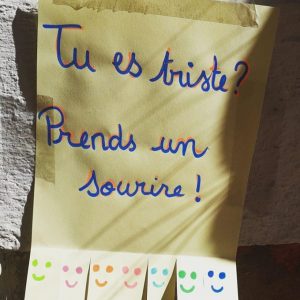 Tu es triste?
Prends un
sourire!